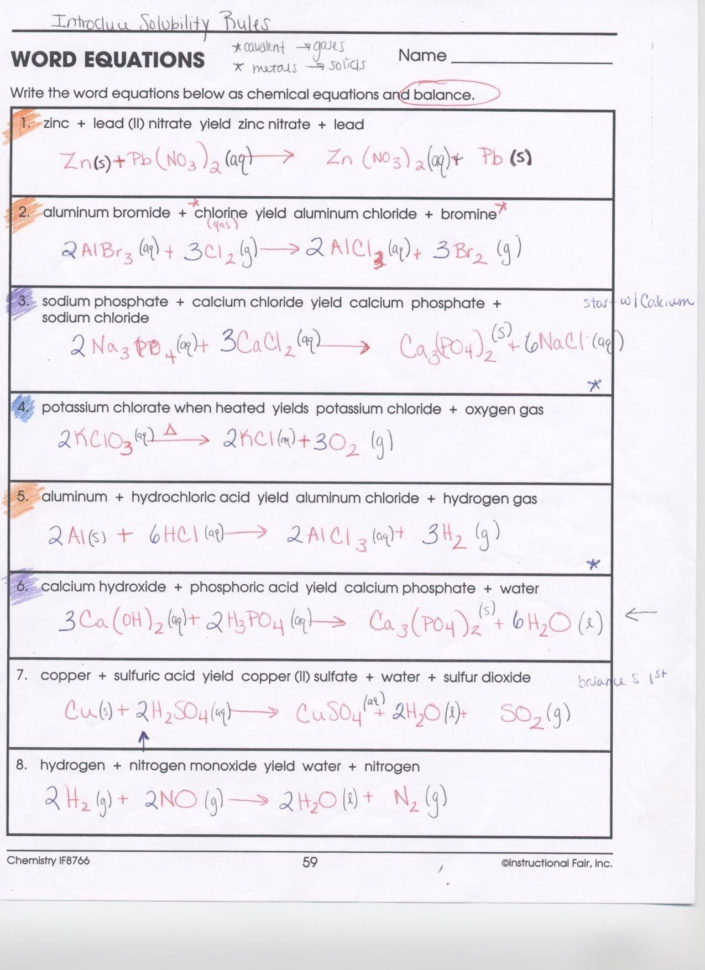 Introduce Solubility Rules
WORD EQUATIONS
* covalent → gases
* metals → solids
Name
Write the word equations below as chemical equations and balance.
1. zinc + lead (II) nitrate yield zinc nitrate + lead
Zn(s) + Pb(NO₃)₂ (aq) → Zn(NO₃)₂(aq) + Pb (s)
2. aluminum bromide + *chlorine yield aluminum chloride + bromine*
(gas)
2AlBr₃(aq) + 3Cl₂(g) → 2AlCl₃(aq) + 3Br₂ (g)
3. sodium phosphate + calcium chloride yield calcium phosphate +
sodium chloride
start w/ Calcium
2Na₃PO₄(aq) + 3CaCl₂(aq) → Ca₃(PO₄)₂(s) + 6NaCl(aq)
*
4. potassium chlorate when heated yields potassium chloride + oxygen gas
2KClO₃(aq) Δ→ 2KCl(aq) + 3O₂ (g)
5. aluminum + hydrochloric acid yield aluminum chloride + hydrogen gas
2Al(s) + 6HCl(aq) → 2AlCl₃(aq) + 3H₂(g)
*
6. calcium hydroxide + phosphoric acid yield calcium phosphate + water
3Ca(OH)₂(aq) + 2H₃PO₄(aq) → Ca₃(PO₄)₂(s) + 6H₂O(l) ←
7. copper + sulfuric acid yield copper (II) sulfate + water + sulfur dioxide
balance S 1st
Cu(s) + 2H₂SO₄(aq) → CuSO₄(aq) + 2H₂O(l) + SO₂(g)
↑
8. hydrogen + nitrogen monoxide yield water + nitrogen
2H₂(g) + 2NO(g) → 2H₂O(l) + N₂(g)
Chemistry IF8766
59
©Instructional Fair, Inc.